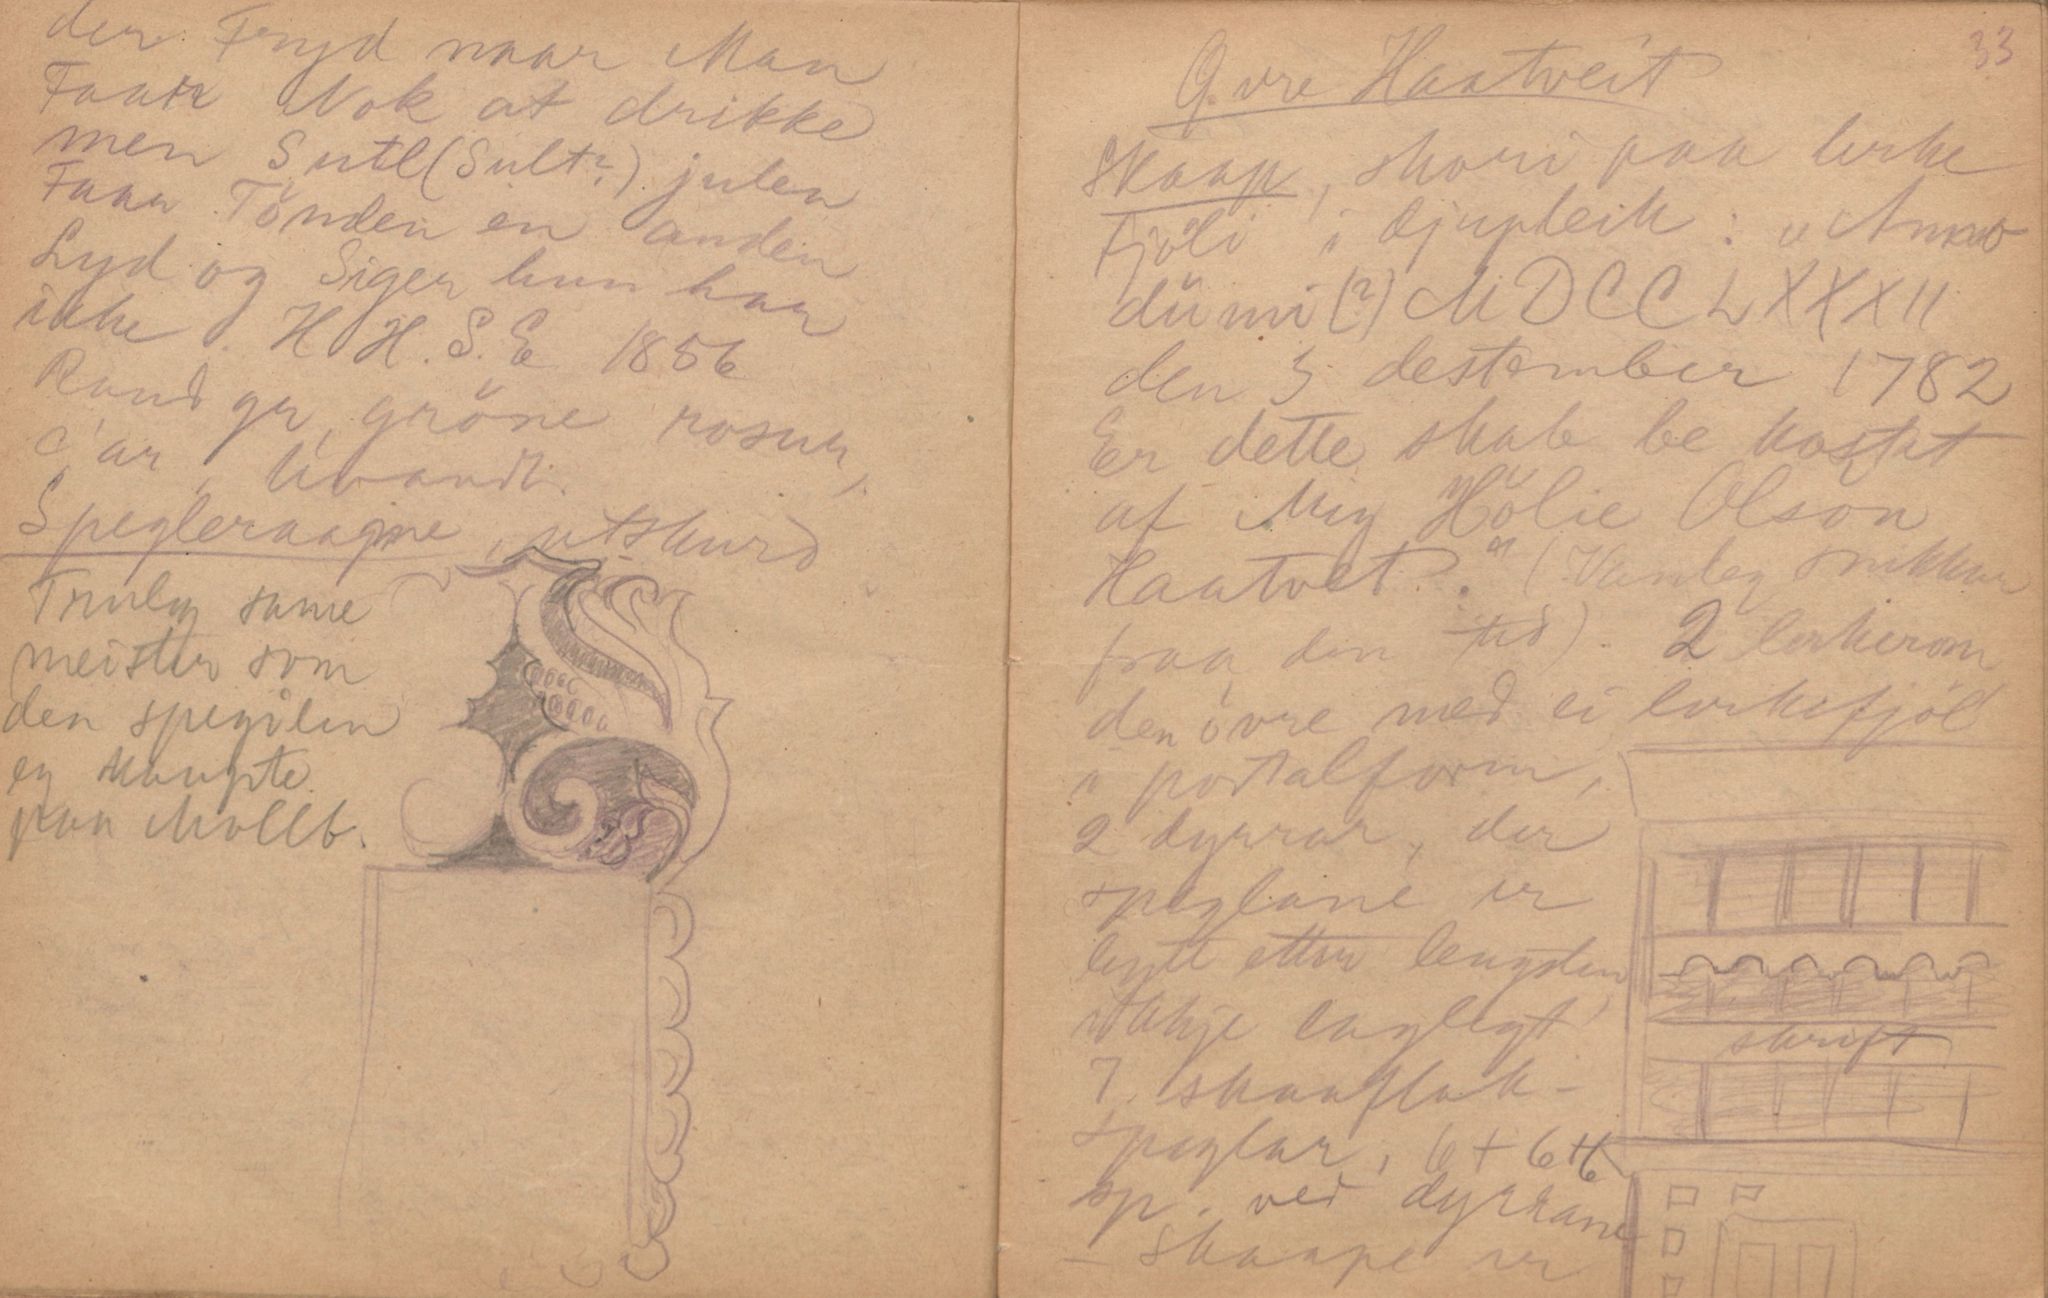 der Fryd naar Man
Faar Nok at drikke
men Sutl (Sult?) julen
Faar Tönden en anden
Lyd og Siger hun har
ikke. H. H. S. E 1856
Rand gr, gröne rosur,
Spegleraagme, utskurd
Truleg same
meister som
den spegilen
eg kaupte
paa Mollb.
33
Övre Haatveit
Skaap, skori paa lerke
fjöli i djupleik: "Anno
dümi (?) MDCCLXXXII
den 3 destember 1782
Er dette skab be kostet
af Mig Hölie Olson
Haatvet." (Vanleg snikkar
fraa den tid). 2 lerkerom
den övre med ei lerkefjöl
i portalform,
2 dyrrar, der
speglane er
lagt etter lengden
ikkje laglegt
7 skaaflak-
speglar, 6 + 6 + 6
sp. ved dyrrane
- Skaape er
skrift